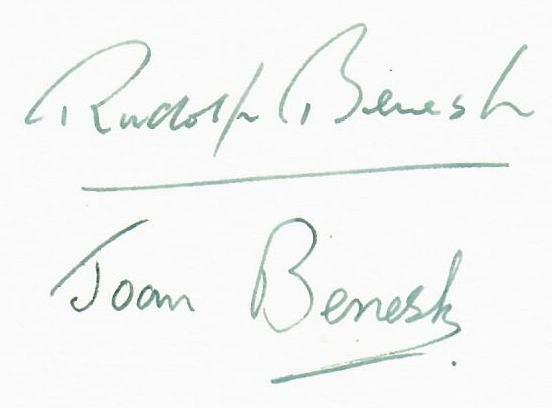 Rudolf Benesh
Joan Benesh